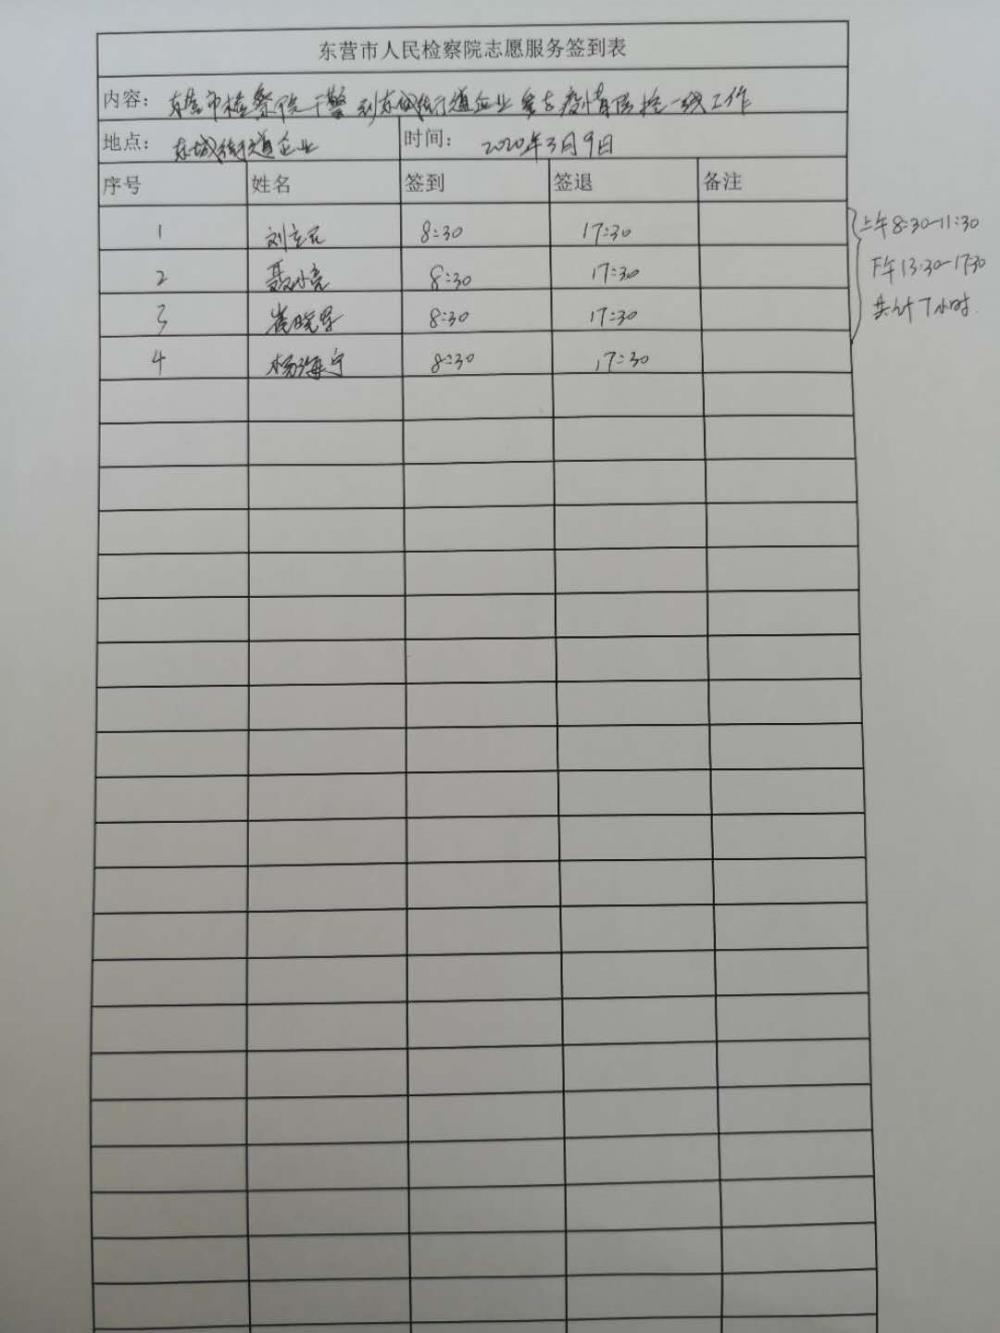 东营市人民检察院志愿服务签到表
内容： 东营市检察院干警到东城街道企业参与疫情防控一线工作
地点： 东城街道企业 时间： 2020年3月9日
序号 姓名 签到 签退 备注
1 刘 8:30 17:30
2 聂小亮 8:30 17:30
3 崔晓军 8:30 17:30
4 杨海宁 8:30 17:30
上午8:30-11:30
下午13:30-17:30
共计7小时.